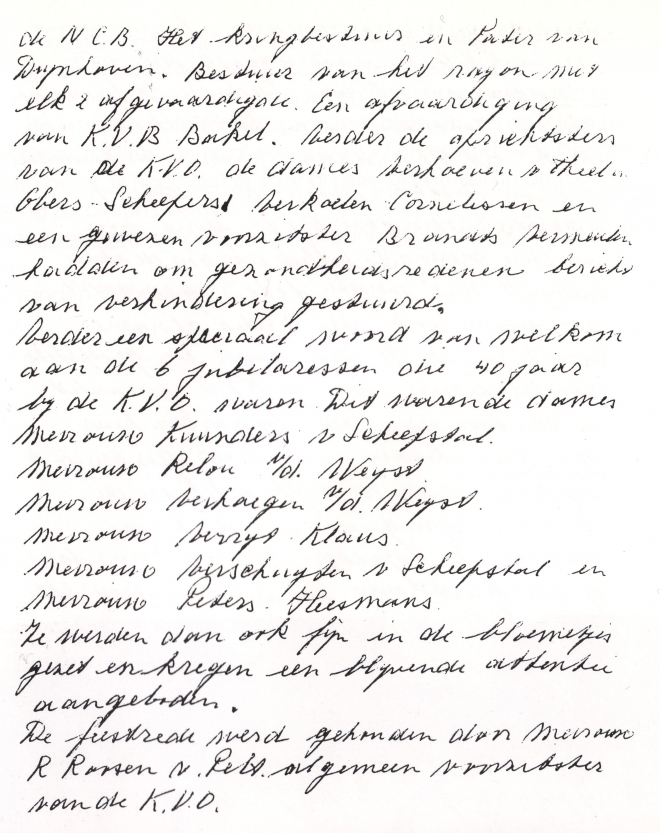 de N C.B. Het kringbestuur en Pater van
Duynhoven. Bestuur van het rayon met
elk 2 afgevaardigde. Een afvaardiging
van K.V.B Bakel. Verder de oprichtsters
van de K.V.O. de dames Verhoeven v
Obers - Scheepers Verkoelen Cornelissen en
een gewezen voorzitster Brands Vermeulen
hadden om gezondheidsredenen bericht
van verhindering gestuurd.
Verder een speciaal woord van welkom
aan de 6 jubilaressen die 40 jaar
by de K.V.O. waren Dit waren de dames
Mevrouw Kuunders v Scheepstal.
Mevrouw Relou v/d. Weyst
Mevrouw Verhaegen v/d. Weyst.
Mevrouw Verryt Klaus.
Mevrouw Verschuyten v Scheepstal en
Mevrouw Peters. Heesmans.
Ze werden dan ook fyn in de bloemetjes
gezet en kregen een blyvende attentie
aangeboden.
De feestrede werd gehouden door Mevrouw
R Roosen v. Pelt. algemeen voorzitster
van de K.V.O.